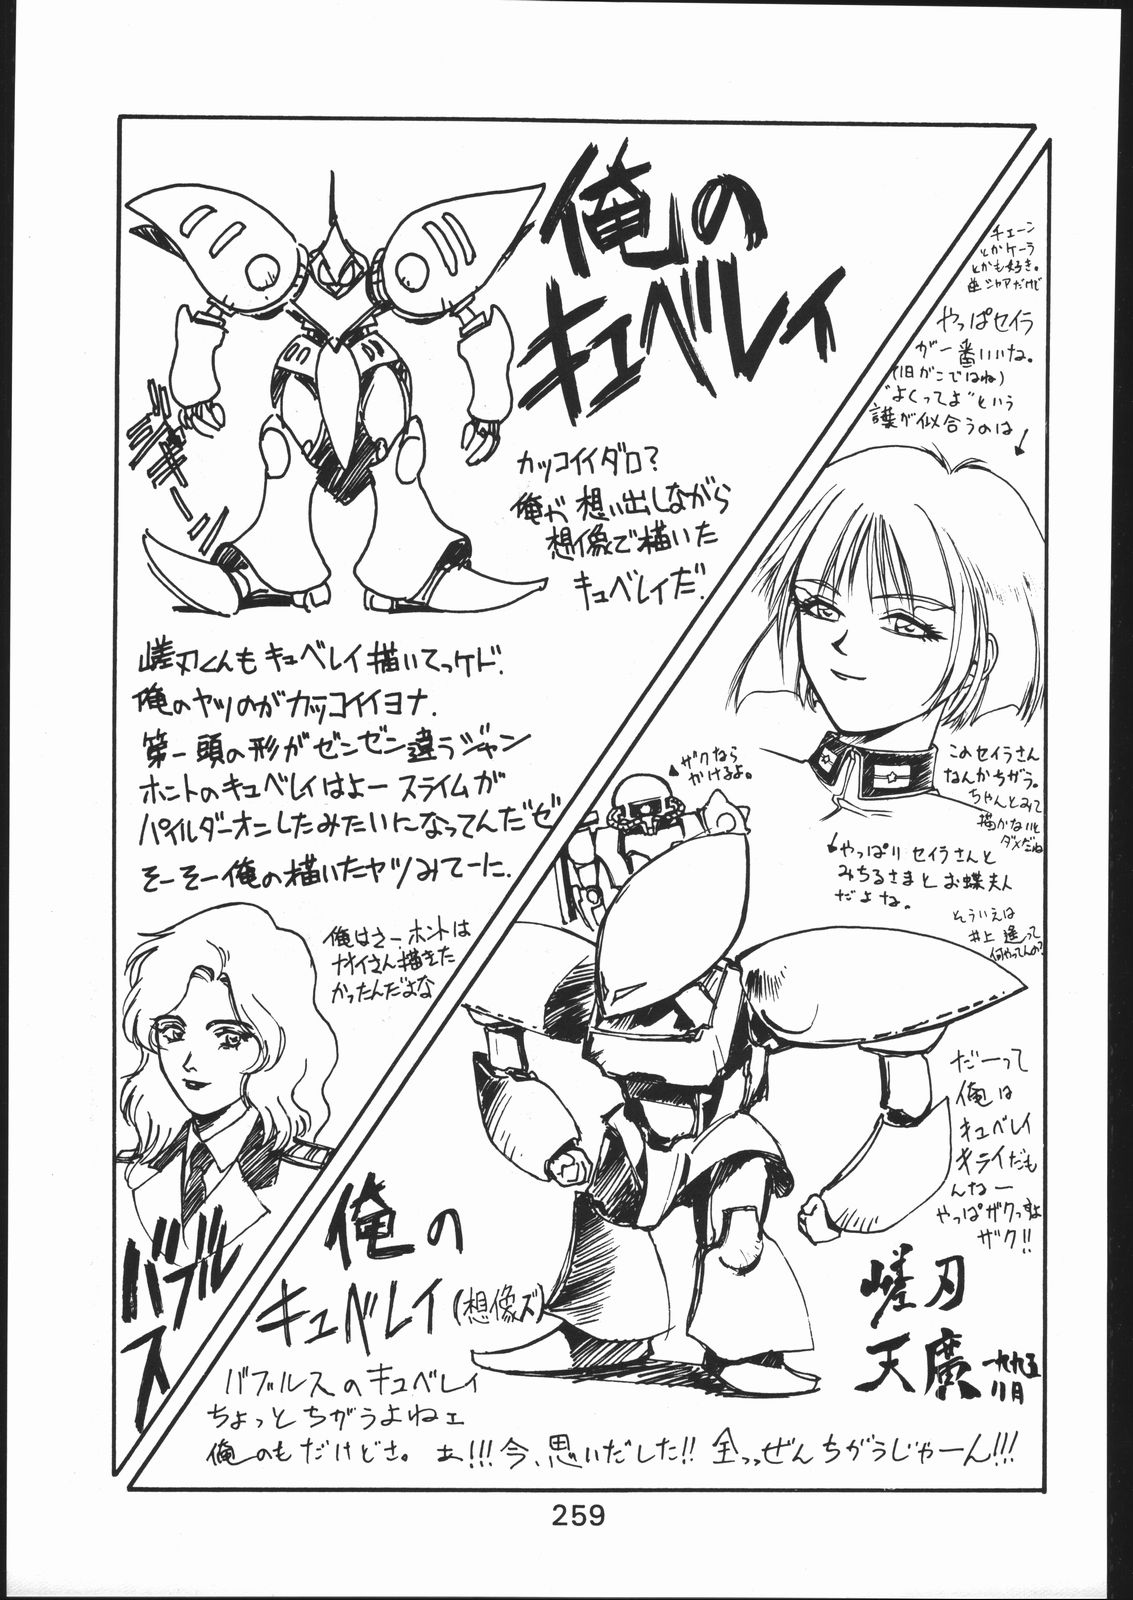 俺の
キュベレイ
ジャキーン
カッコイイダロ?
俺が想い出しながら
想像で描いた
キュベレイだ.
嵯刃くんもキュベレイ描いてっケド.
俺のヤツのがカッコイイヨナ.
第一頭の形がゼンゼン違うジャン
ホントのキュベレイはよー スライムが
パイルダーオンしたみたいになってんだゼ
そーそー俺の描いたヤツみてーに.
俺はさー.ホントは
ナナイさん描きた
かったんだよな
バブルス
チェーン
とかケーラ
とかも好き。
逆シャアだけど
やっぱセイラ
が一番いいね。
(旧がこではね)
"よくってよ"という
言葉が似合うのは
このセイラさん
なんかちがう。
ちゃんとみて
描かないと
ダメだね
やっぱりセイラさんと
みちるさまとお蝶夫人
だよな。
そういえば
井上 遥って
何やってんの?
ザクなら
かけるよ。
だーって
俺は
キュベレイ
キライだも
んなー
やっぱザクっすよ
ザク!!
俺の
キュベレイ(想像ズ)
嵯刃
天廣
一九九五
11月
バブルスのキュベレイ
ちょっとちがうよねェ
俺のもだけどさ。あ!!!今、思いだした!!全っっぜんちがうじゃーん!!!
259